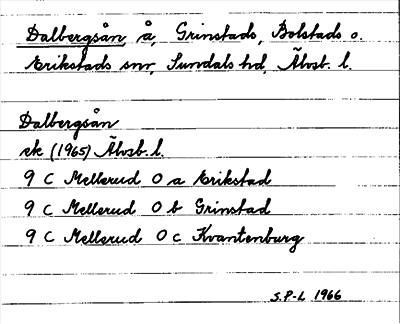 Dalbergsån, å, Grinstads, Bolstads o.
Erikstads snr, Sundals hd, Älvsb. l.
Dalbergsån
ek (1965) Älvsb. l.
9 C Mellerud 0 a Erikstad
9 C Mellerud 0 b Grinstad
9 C Mellerud 0 c Kvantenburg
S.P-L 1966